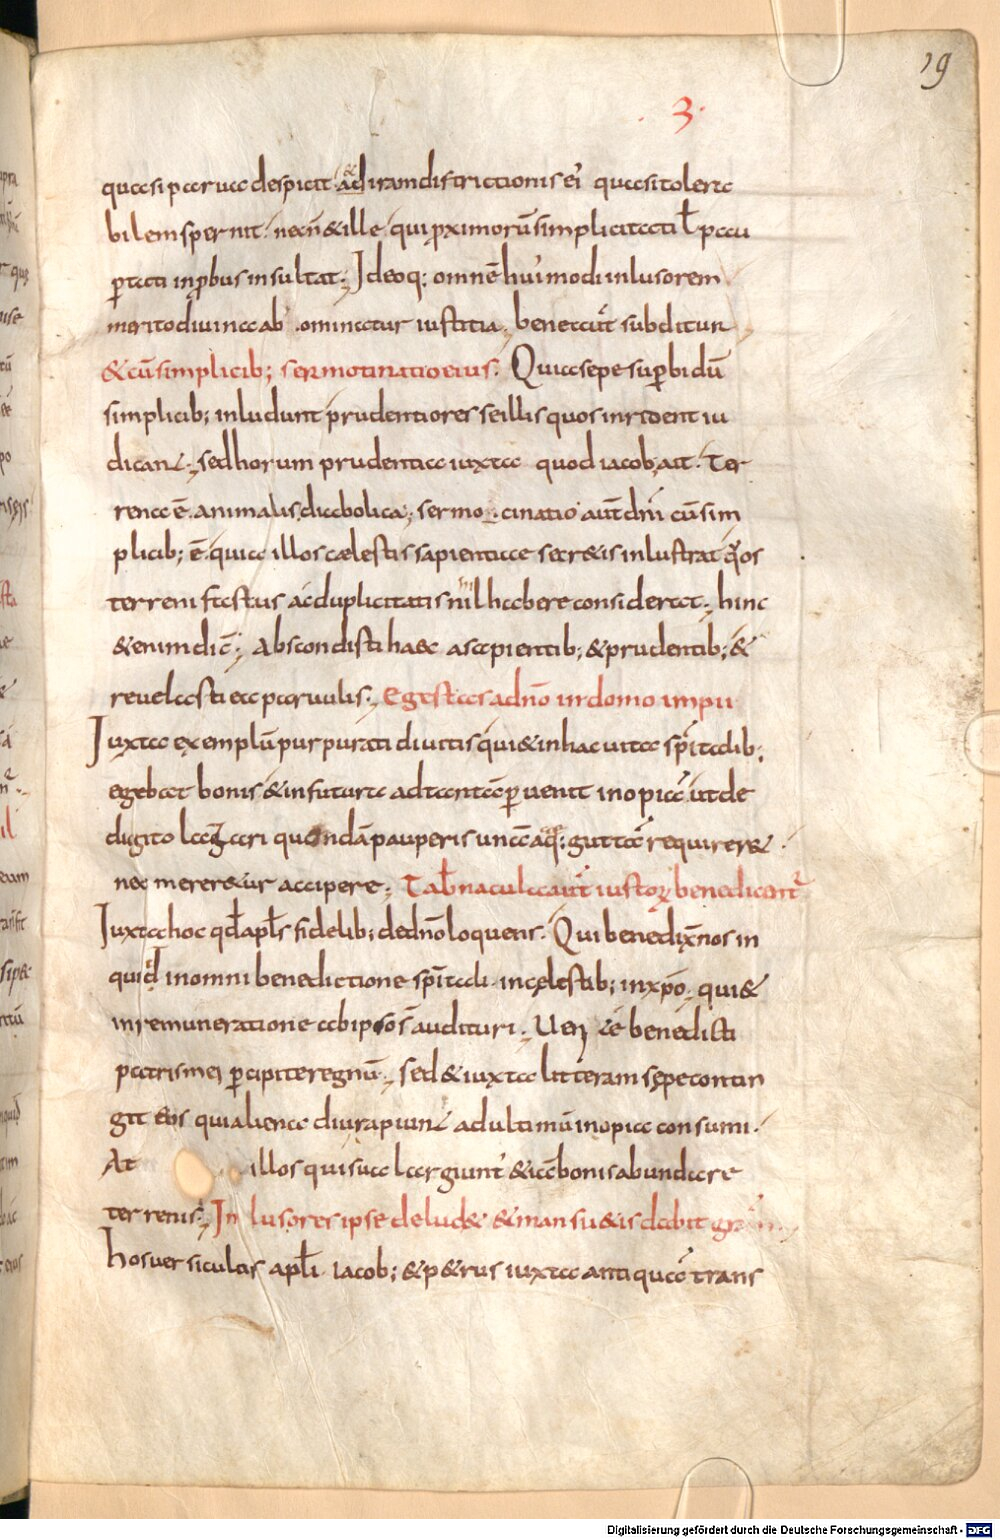 19
3
quasi parua despicit & ad iram districtionis ei' quasi tolera
bilem spernit. necn̄ & ille qui ꝓximorū simplicitati ł pau
ꝑtati inꝓbus insultat; Ideoq; omnē hui'modi inlusorem
merito diuina abominatur iustitia; beneaūt subditur
& cū simplicib; sermotinatio eius. Quia sepe suꝑbi dū
simplicib; inludunt prudentiores se illis quos inrident iu
dicant; sed horum prudentia iuxta quod iacob; ait. Ter
rena ē. animalis. diabolica; sermocinatio aūt dn̄i cū sim
plicib; ē. quia illos cælestis sapientiae secr&is inlustrat quos
terreni fastus ac duplicitatis nihil habere considerat; hinc
& enim dic̄; Abscondisti haec a sapientib; & prudentib; &
reuelasti ea paruulis; Egestas a dn̄o in domo impii
Iuxta exemplū purpurati diuitis qui & in hac uita sp̄italib;
egebat bonis & in futura ad tantā ꝑuenit inopiā ut de
digito lazari quondā pauperis unā aquæ guttā requirer&.
nec merer&ur accipere; Tab̄nacula aūt iustoꝝ benedicent̄
Iuxta hoc qd̄ apłs fidelib; de dn̄o loquens. Qui benedix̄ nos in
quid in omni benedictione sp̄itali. in cęlestib; in xp̄o; qui &
in remuneratione ab ipso s̄ audituri; Uenite benedicti
patris mei ꝑcipite regnū; sed & iuxta litteram sępe contin
git eis qui aliena diu rapiunt ad ultimū inopia consumi.
At illos qui sua largiunt' & iā bonis abundare
terrenis; Inlusores ipse delud& & mansu&is dabit grām.
hos uersiculos apłi iacob; & p&rus iuxta antiquā trans
Digitalisierung gefördert durch die Deutsche Forschungsgemeinschaft - DFG